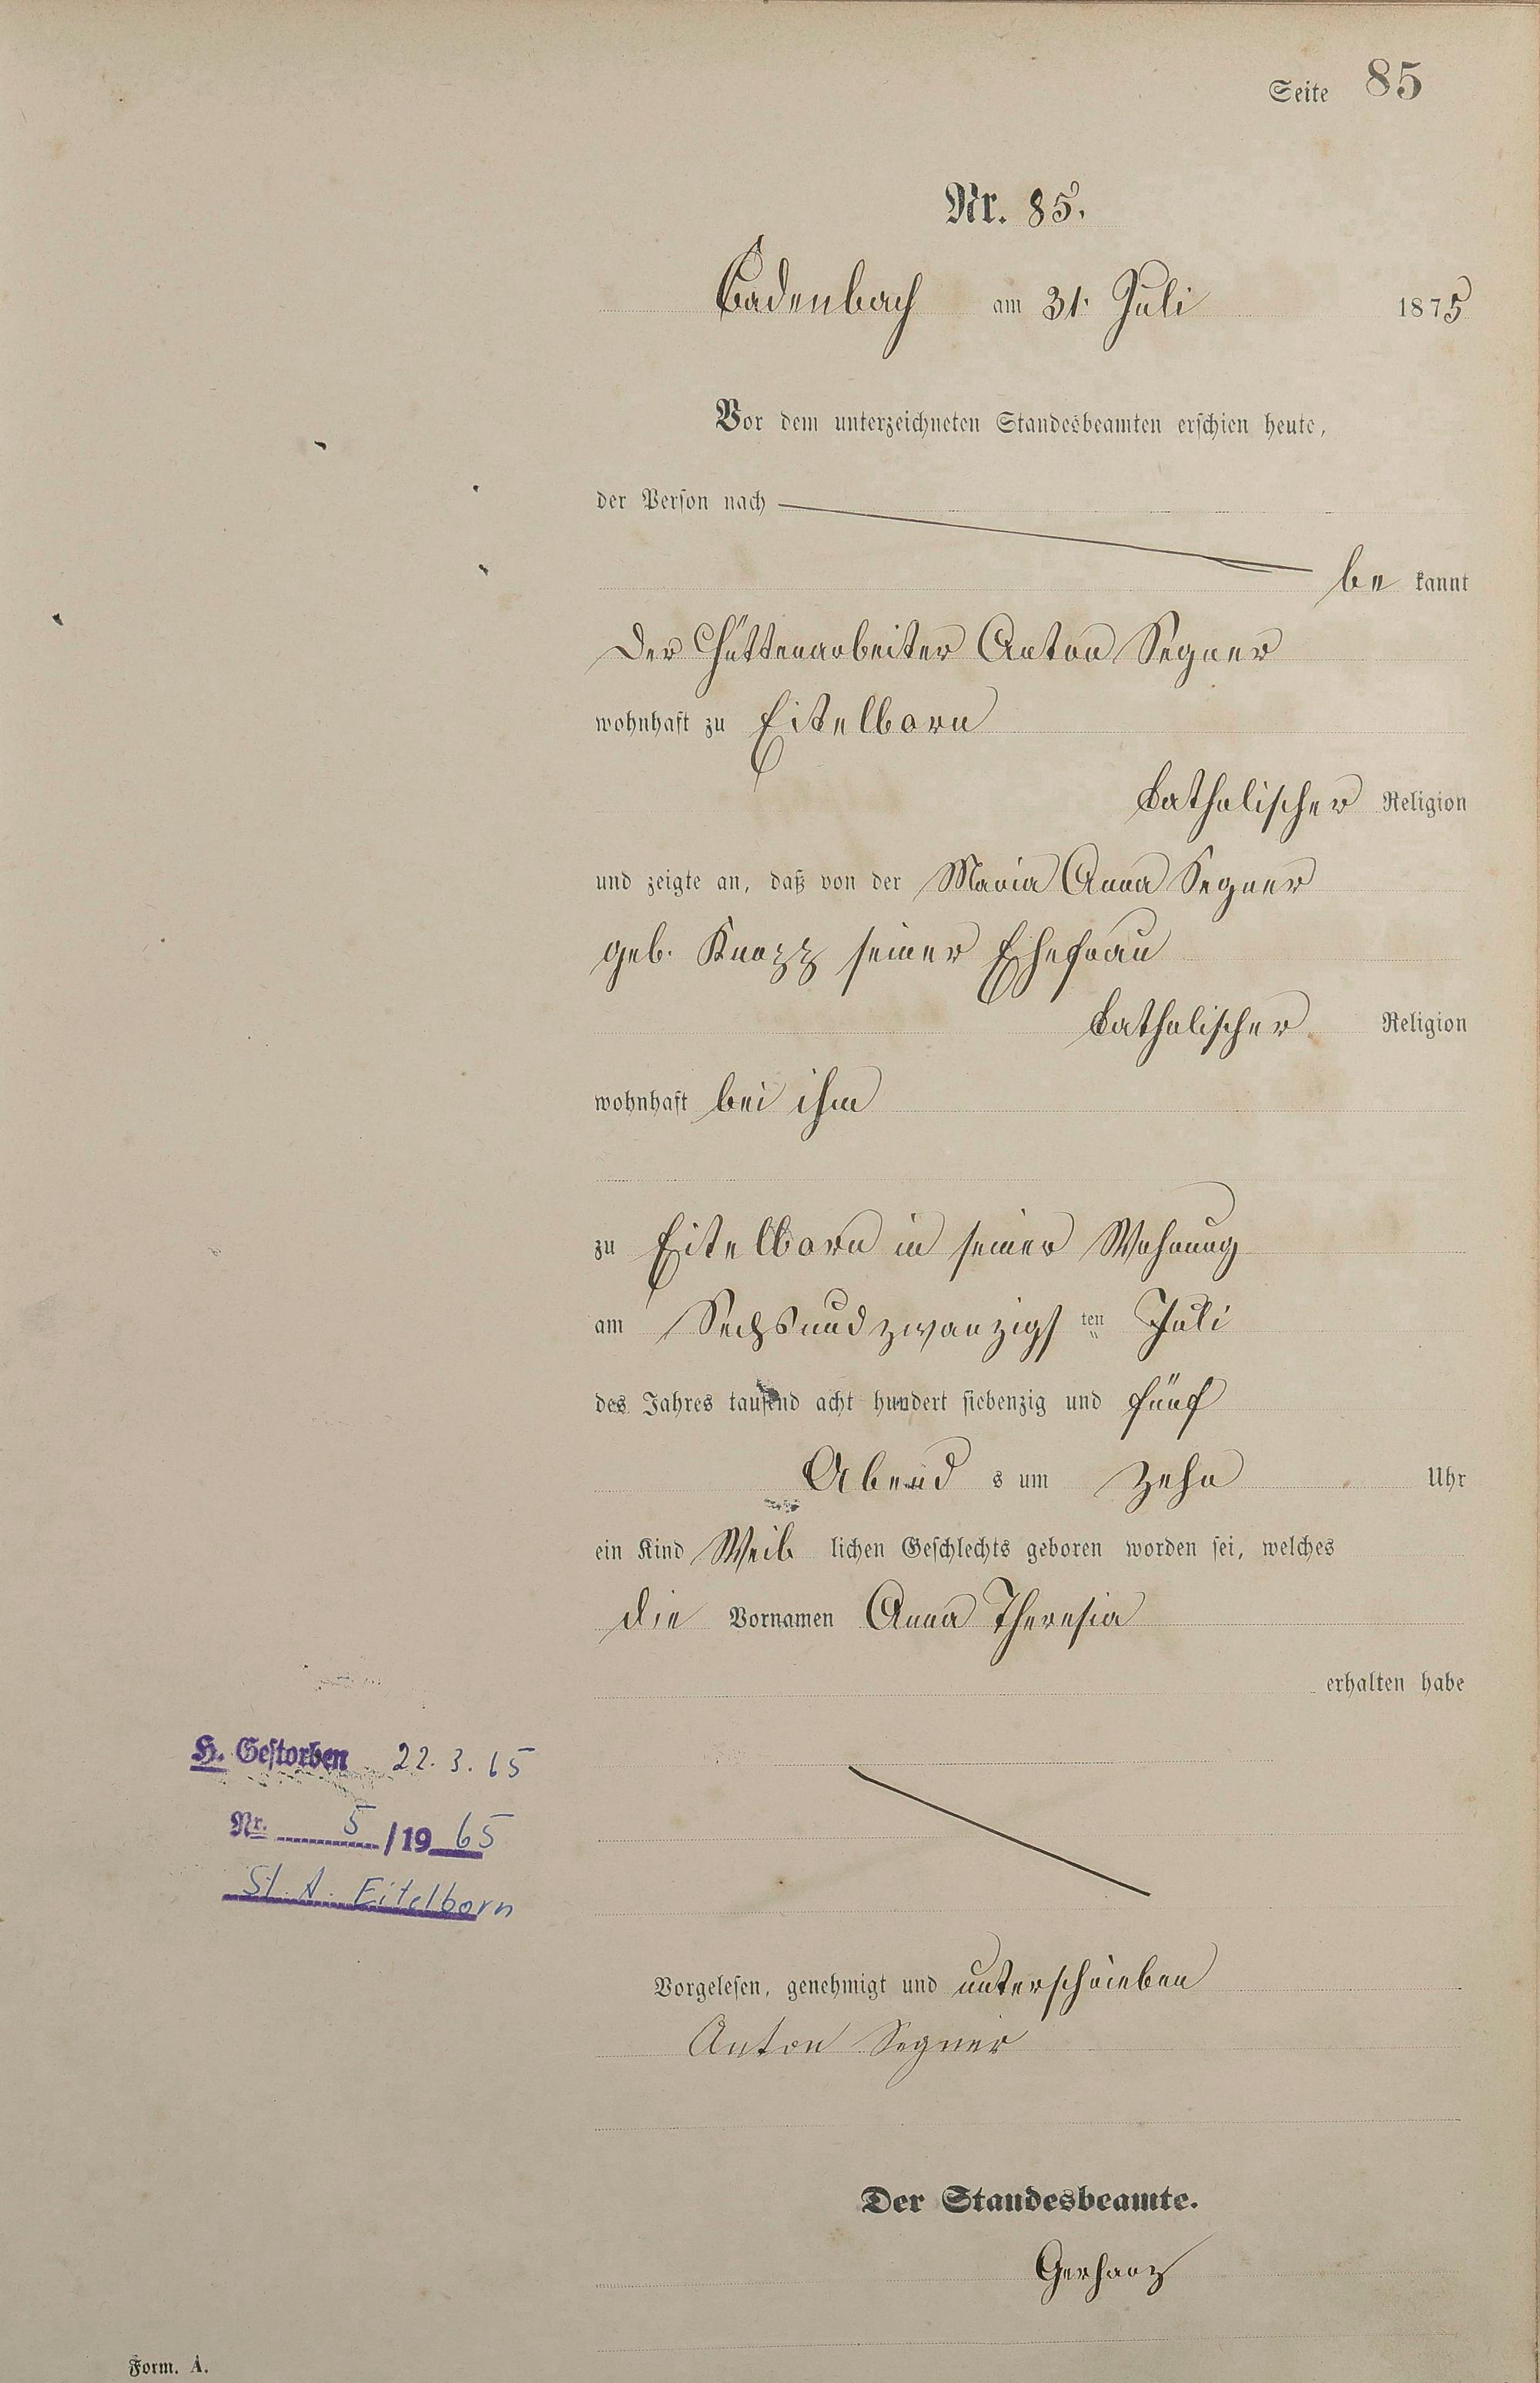 Seite 85
Nr. 85.
Cadenbach am 31. Juli 1875
Vor dem unterzeichneten Standesbeamten erschien heute,
der Person nach
be kannt
Der Hüttenarbeiter Anton Segner
wohnhaft zu Eitelborn
katholischer Religion
und zeigte an, daß von der Maria Anna Segner
geb. Knopp seiner Ehefrau
katholischer Religion
wohnhaft bei ihm
zu Eitelborn in seiner Wohnung
am Sechsundzwanzigs ten Juli
des Jahres tausend acht hundert siebenzig und fünf
Abend s um zehn Uhr
ein Kind Weib lichen Geschlechts geboren worden sei, welches
die Vornamen Anna Theresia
erhalten habe
H. Gestorben 22.3.65
Nr. 5/1965
St. A. Eitelborn
Vorgelesen, genehmigt und unterschrieben
Anton Segner
Der Standesbeamte.
Gerharz
Form. A.